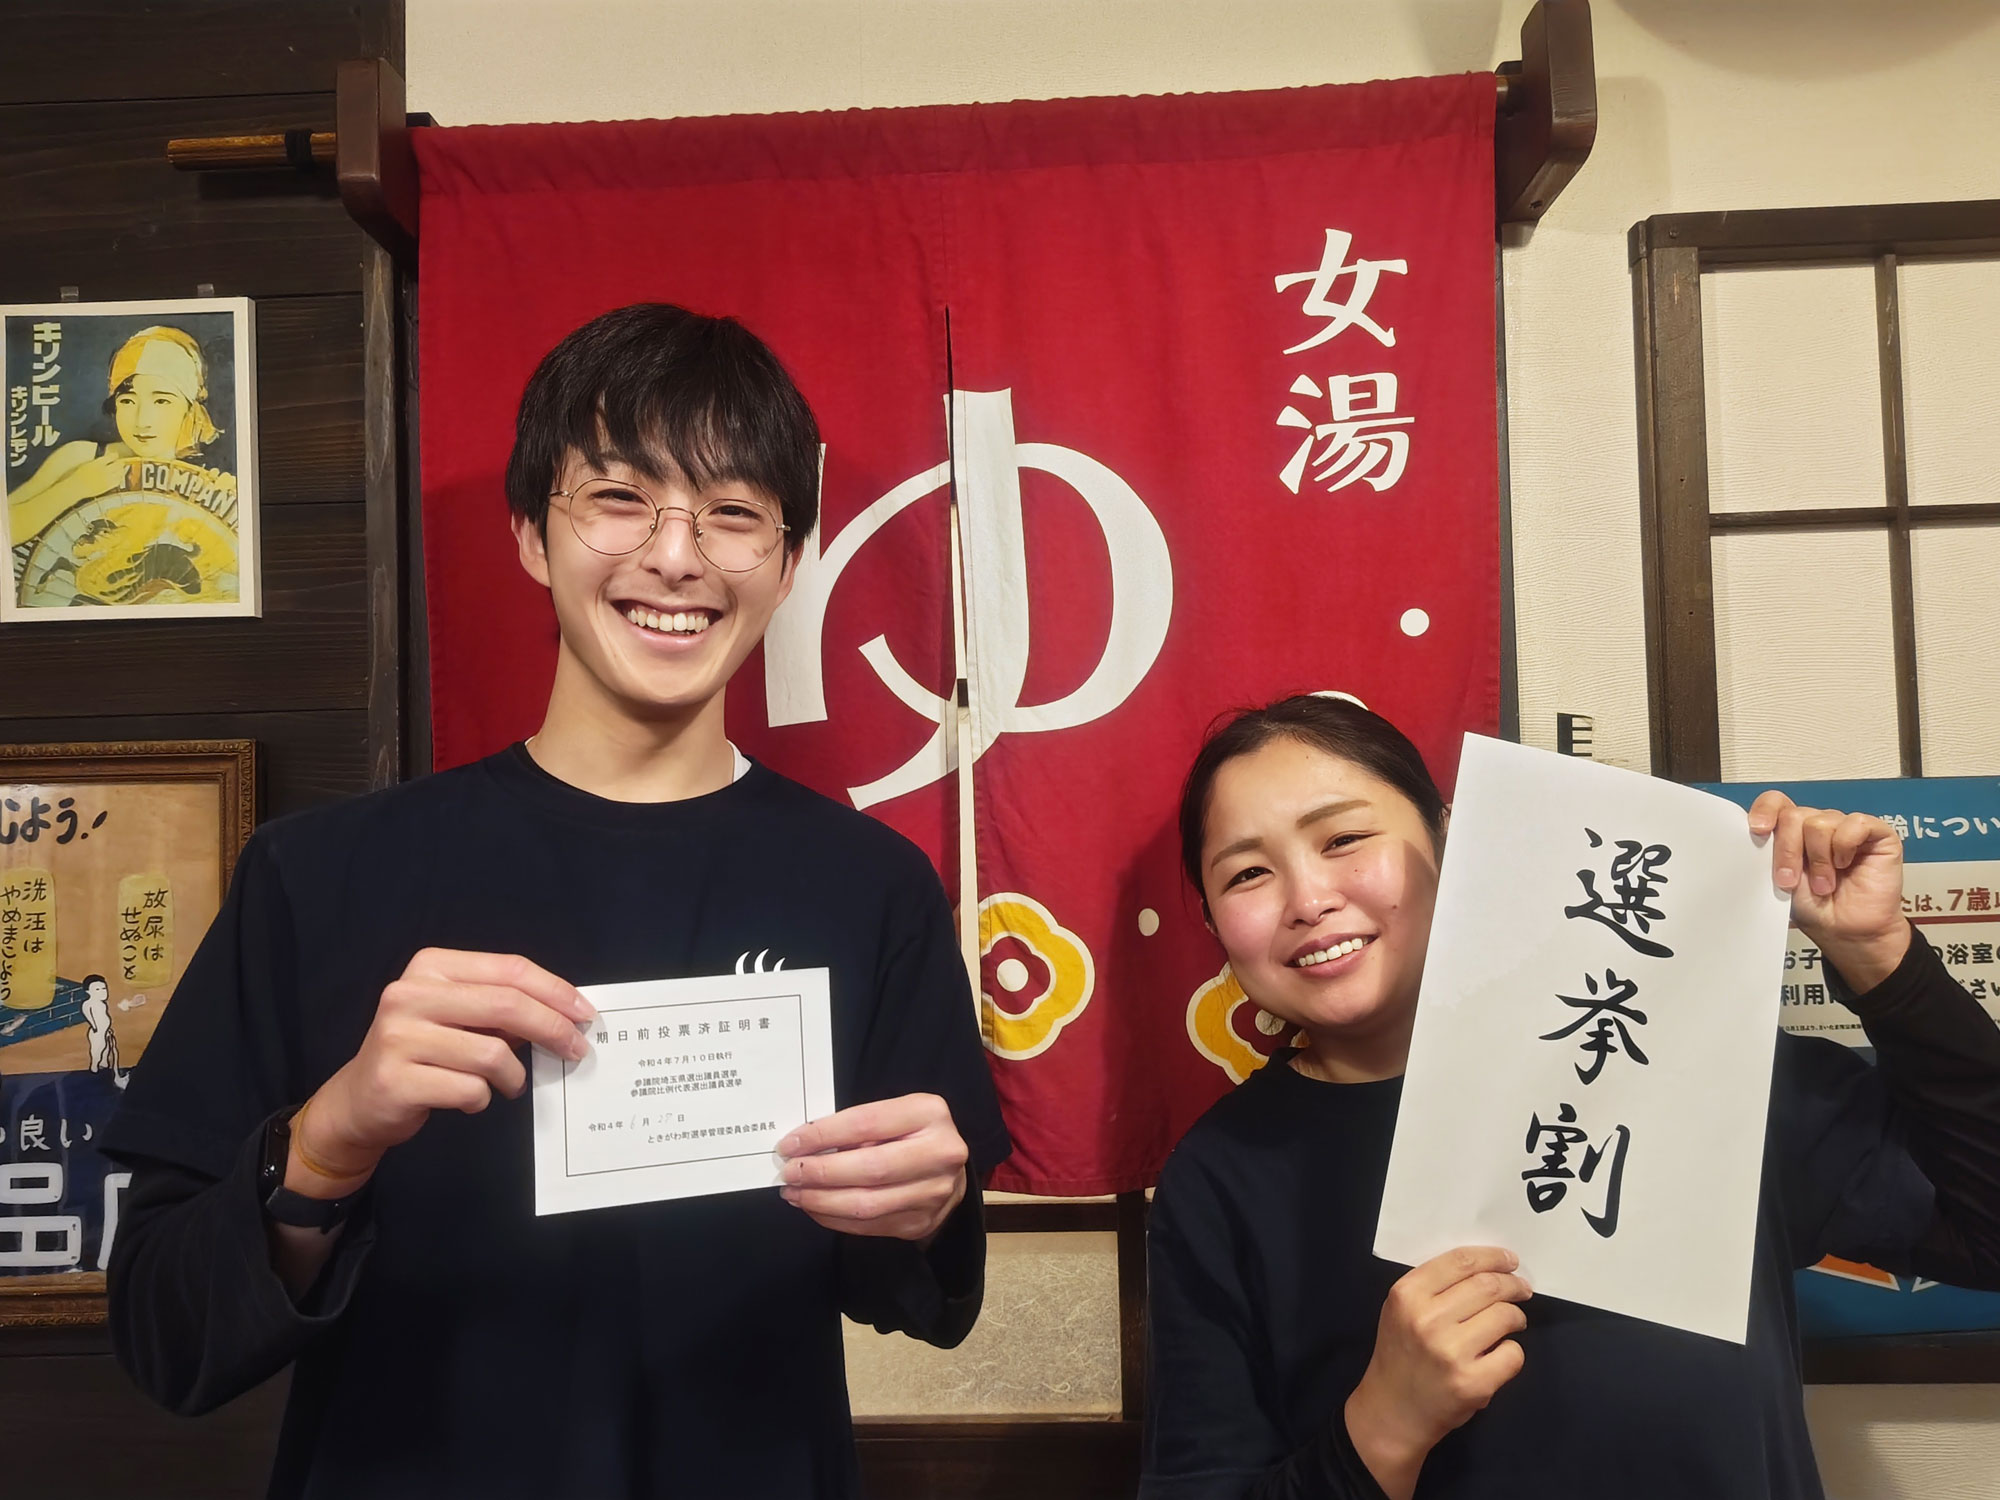 キリンビール
キリンレモン
Y COMPANY
じよう!
放尿は
せぬこと
洗汪は
やめまこよう
良い
女湯
ゆ
期日前投票済証明書
令和4年7月10日執行
参議院埼玉県選出議員選挙
参議院比例代表選出議員選挙
令和4年 6月 27日
ときがわ町選挙管理委員会委員長
選挙割
齢につい
たは、7歳以
お子
の浴室の
利用
ださい